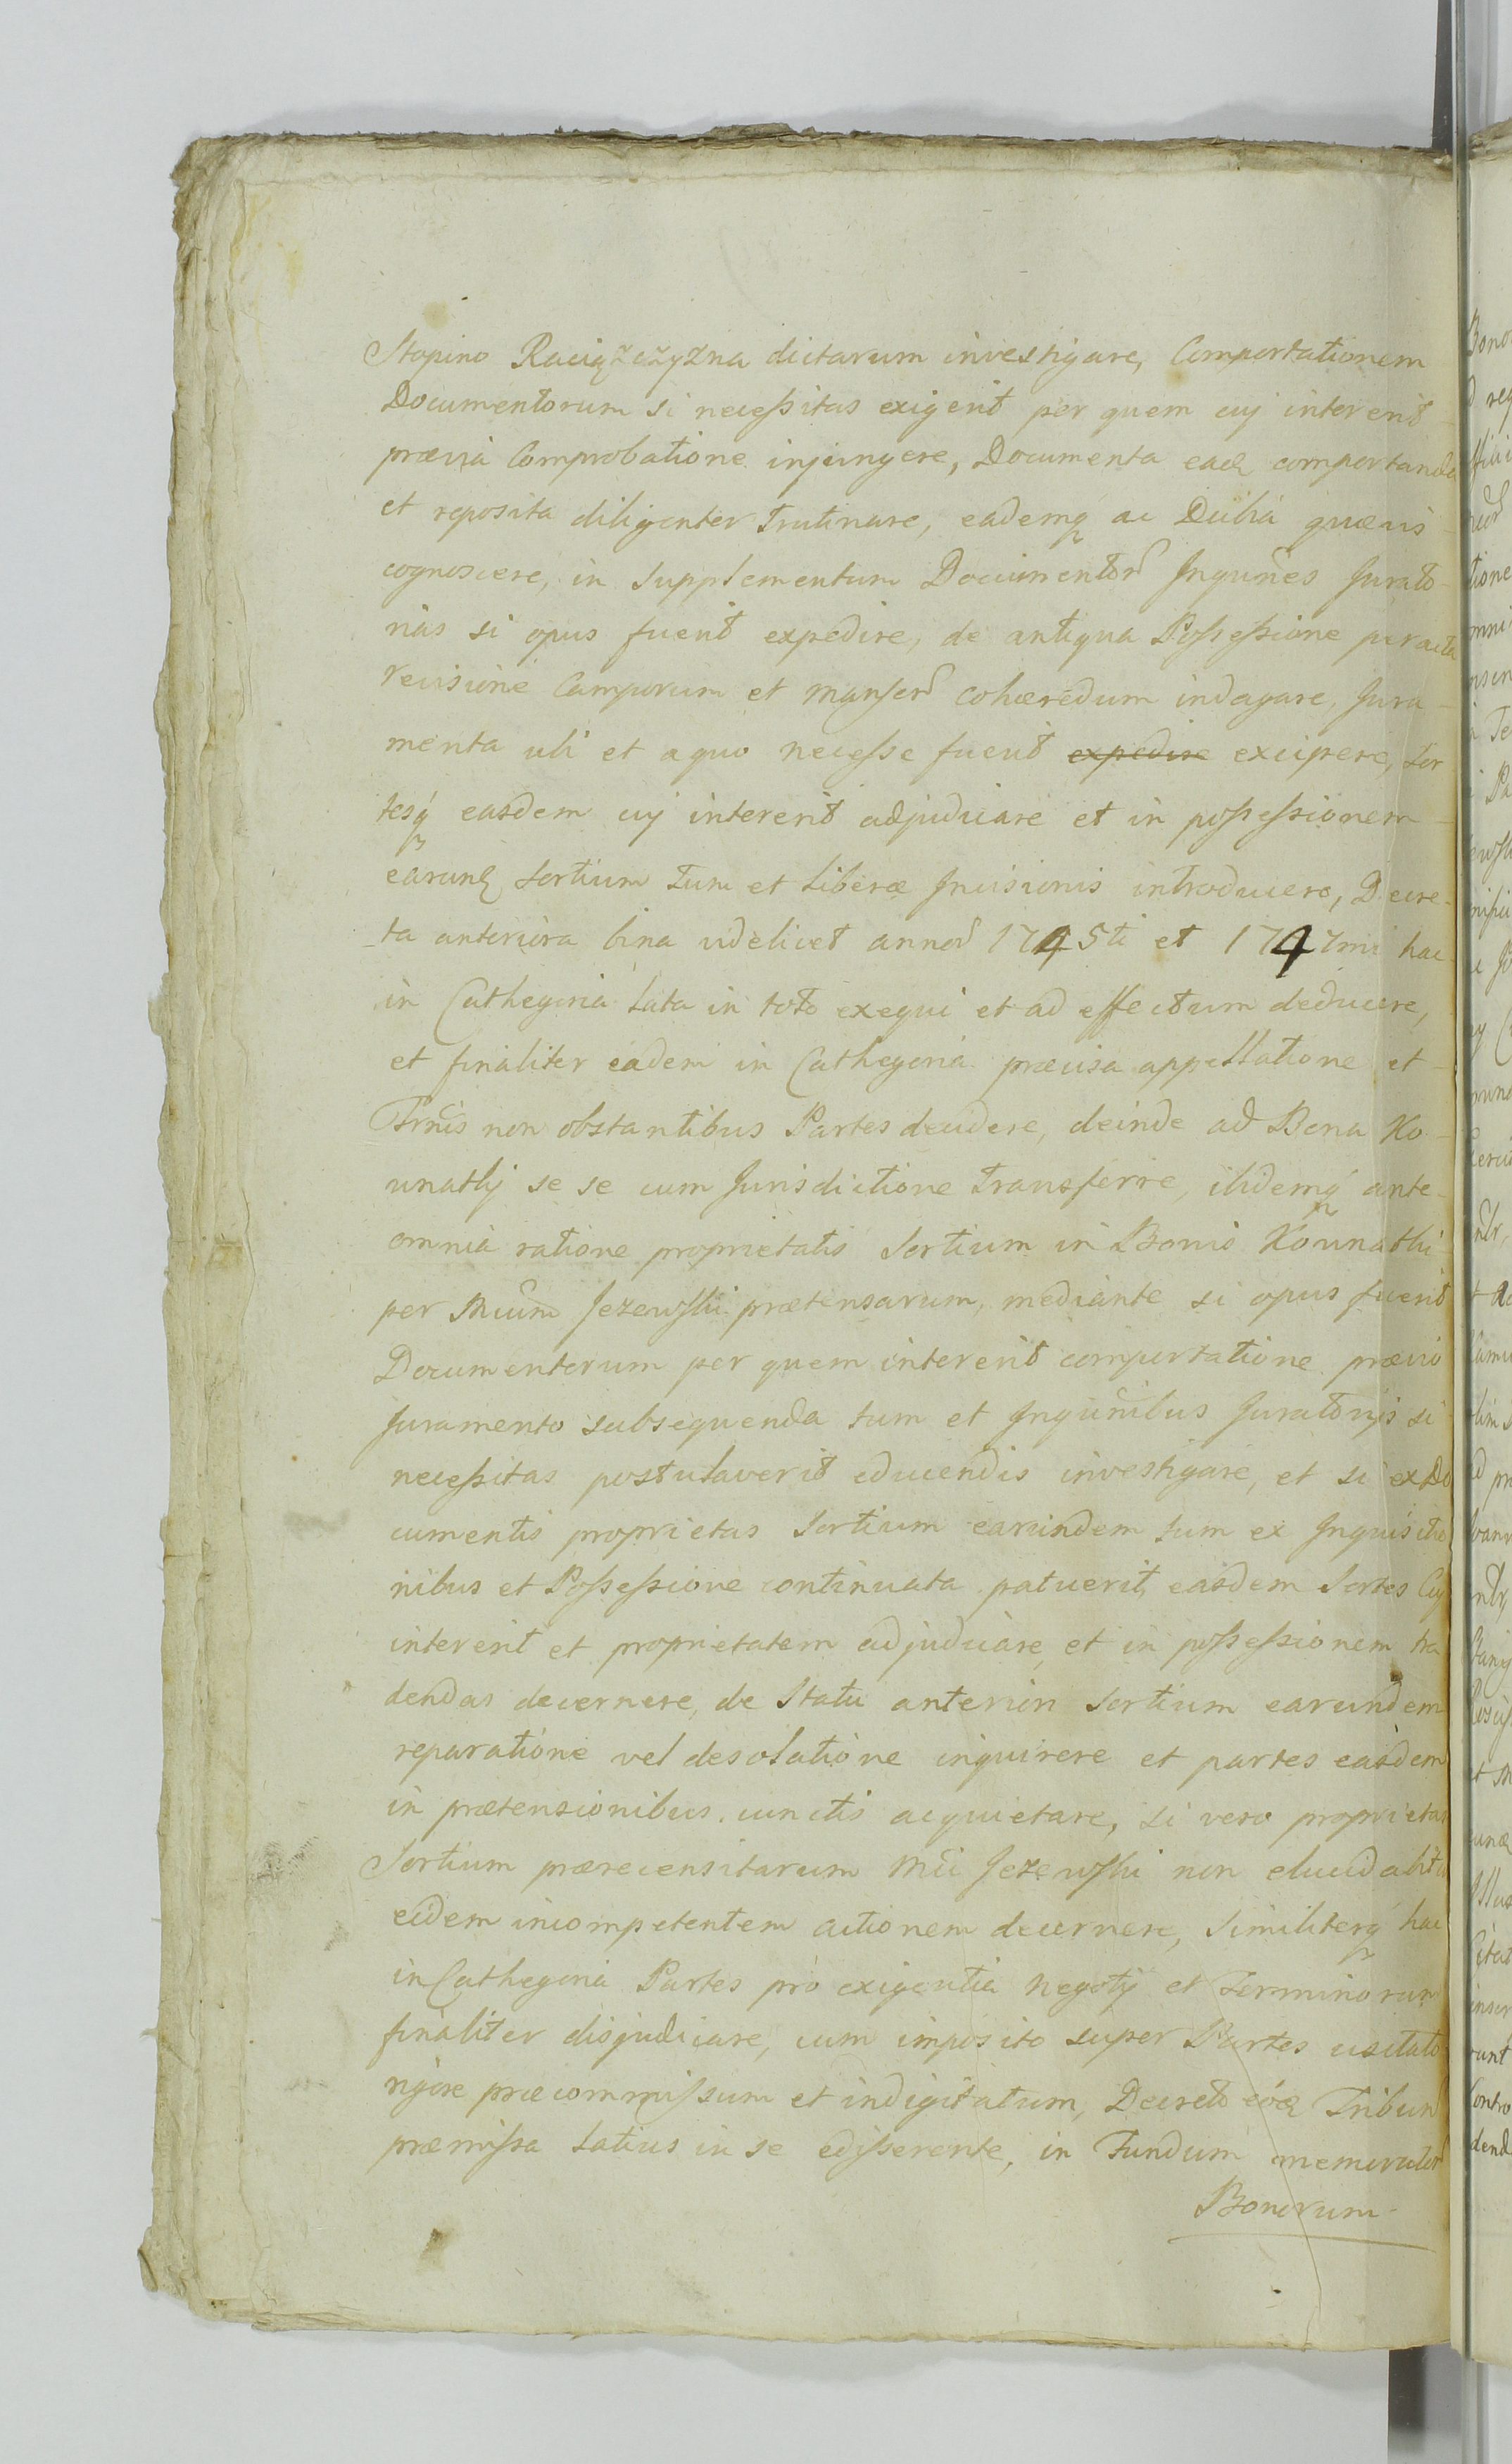 Stopino Raciążczyzna dictarum investigare, Comportationem
Documentorum si necessitas exigerit per quem cuj intererit
prævia Comprobatione injungere, Documenta eadȩ comportanda
et reposita diligenter trutinare, eademq ac Dubia quævis
cognoscere, in supplementum Documentor Inquñes Jurato-
rias si opus fuerit expedire, de antiqua Possessione peracta
revisione Camporum et mansor cohæredum indagare, Jura-
menta ubi et a quo necesse fuerit expedire excipere, Sor
tesq easdem cuj intererit adjudicare et in possessionem
earunȩ Sortium tum et liberæ Incisionis introducere, Decre-
ta anteriora bina videlicet annor 1745ti et 1747mi hac
in Cathegoria lata in toto exequi et ad effectum deducere,
et finaliter eadem in Cathegoria præcisa appellatione et
Trnis non obstantibus Partes decidere, deinde ad Bona Ko-
unatky se se cum Jurisdictione transferre, ibidemq ante-
omnia ratione proprietatis Sortium in Bonis Kounatki
per Mcum Jezewski prætensarum, mediante si opus fuerit
Documentorum per quem intererit comportatione prævio
Juramento subsequenda tum et Inquñibus Juratorijs si
necessitas postulaverit educendis investigare, et si ex Do
cumentis proprietas Sortium earundem tum ex Inquisitio
nibus et Possessione continuata patuerit, easdem Sortes Cuj
intererit et proprietatem adjudicare, et in possessionem tra
dendas decernere, de Statu anteriori Sortium earundem
reparatione vel desolatione inquirere et partes easdem
in prætensionibus cunctis acquietare, si vero proprietas
Sortium prærecensitarum Mci Jezewski non elucidabitur
eidem incompetentem actionem decernere, Similiterq hac
in Cathegoria Partes pro exigentia negotij et Terminorum
finaliter disjudicare, cum imposito super Partes usitato
rigore præcommissum et indigitatum, Decreto eoȩ Tribun
præmissa latius in se edisserente, in Fundum memorator
Bonorum